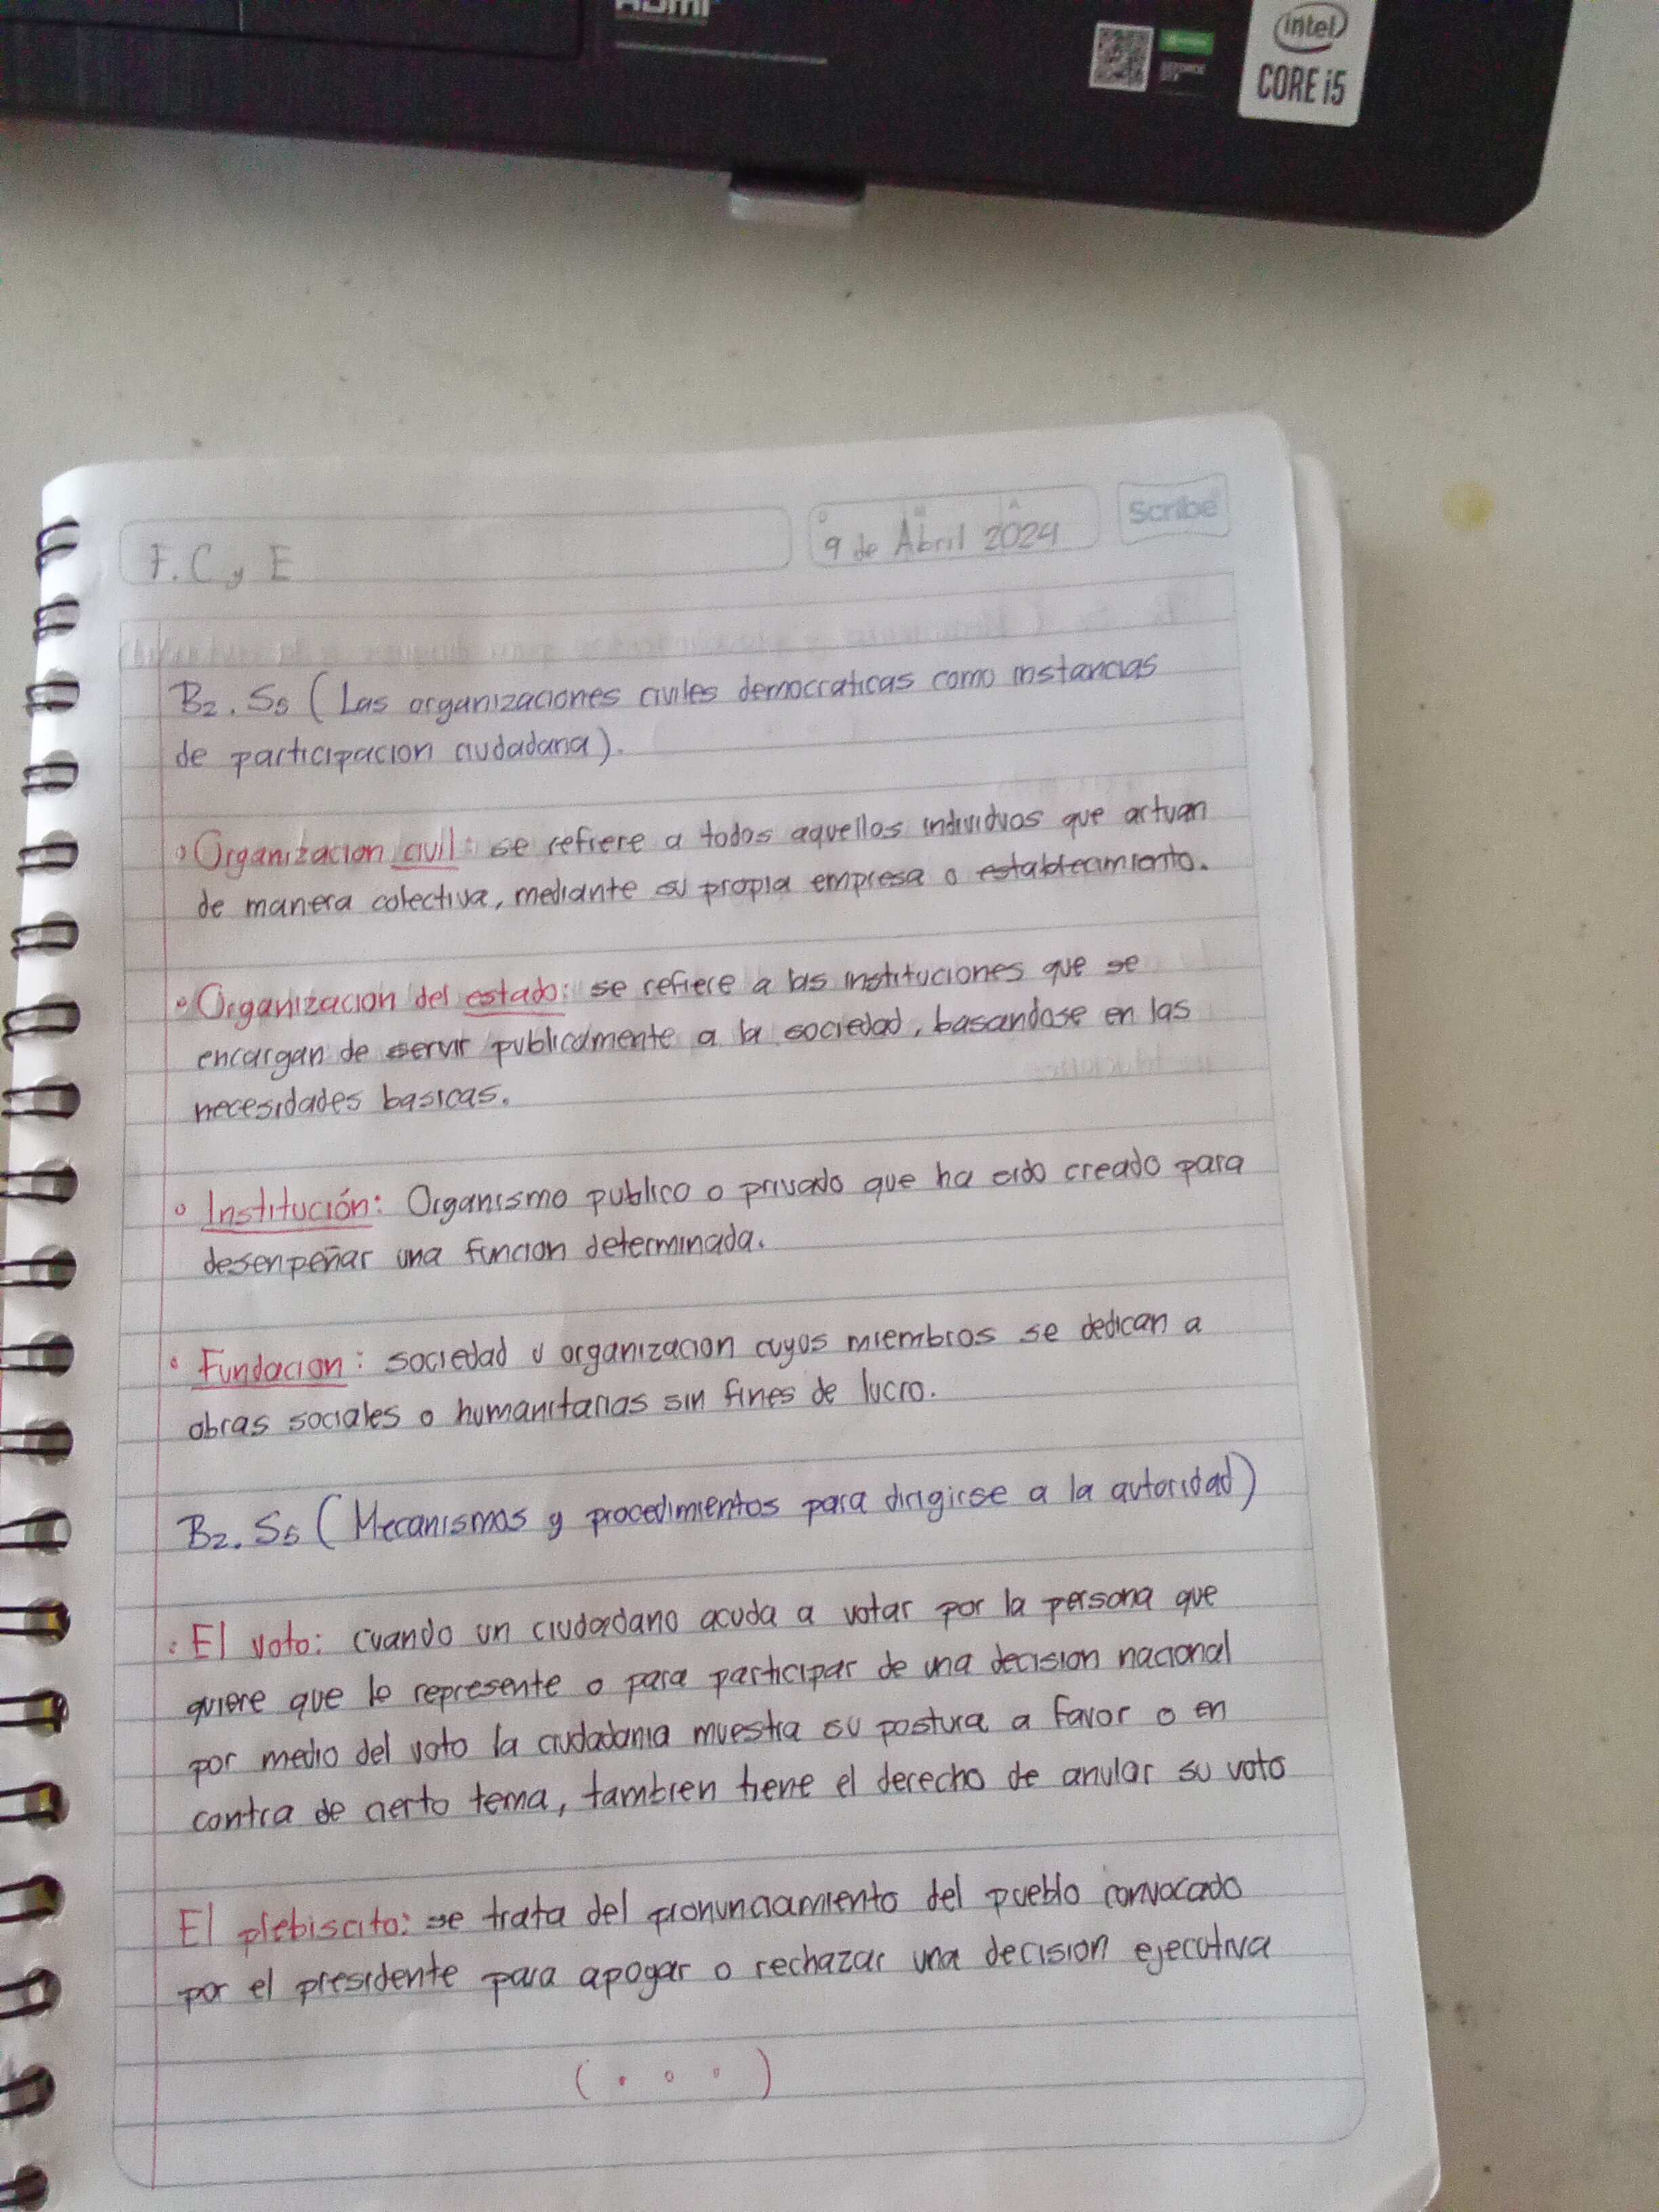 HDMI
intel
CORE i5
F. C y E
9 de Abril 2024
Scribe
B2. S5 (Las organizaciones civiles democraticas como instancias
de participacion ciudadana).
Organizacion civil: se refiere a todos aquellos individuos que actuan
de manera colectiva, mediante su propia empresa o establecimiento.
Organizacion del estado: se refiere a las instituciones que se
encargan de servir publicamente a la sociedad, basandose en las
necesidades basicas.
Institución: Organismo publico o privado que ha sido creado para
desenpeñar una funcion determinada.
Fundacion: sociedad u organizacion cuyos miembros se dedican a
obras sociales o humanitarias sin fines de lucro.
B2. S5 (Mecanismos y procedimientos para dirigirse a la autoridad)
El voto: cuando un ciudadano acuda a votar por la persona que
quiere que lo represente o para participar de una decision nacional
por medio del voto la ciudadania muestra su postura a favor o en
contra de cierto tema, tambien tiene el derecho de anular su voto
El plebiscito: se trata del pronunciamiento del pueblo convocado
por el presidente para apoyar o rechazar una decision ejecutiva
(...)